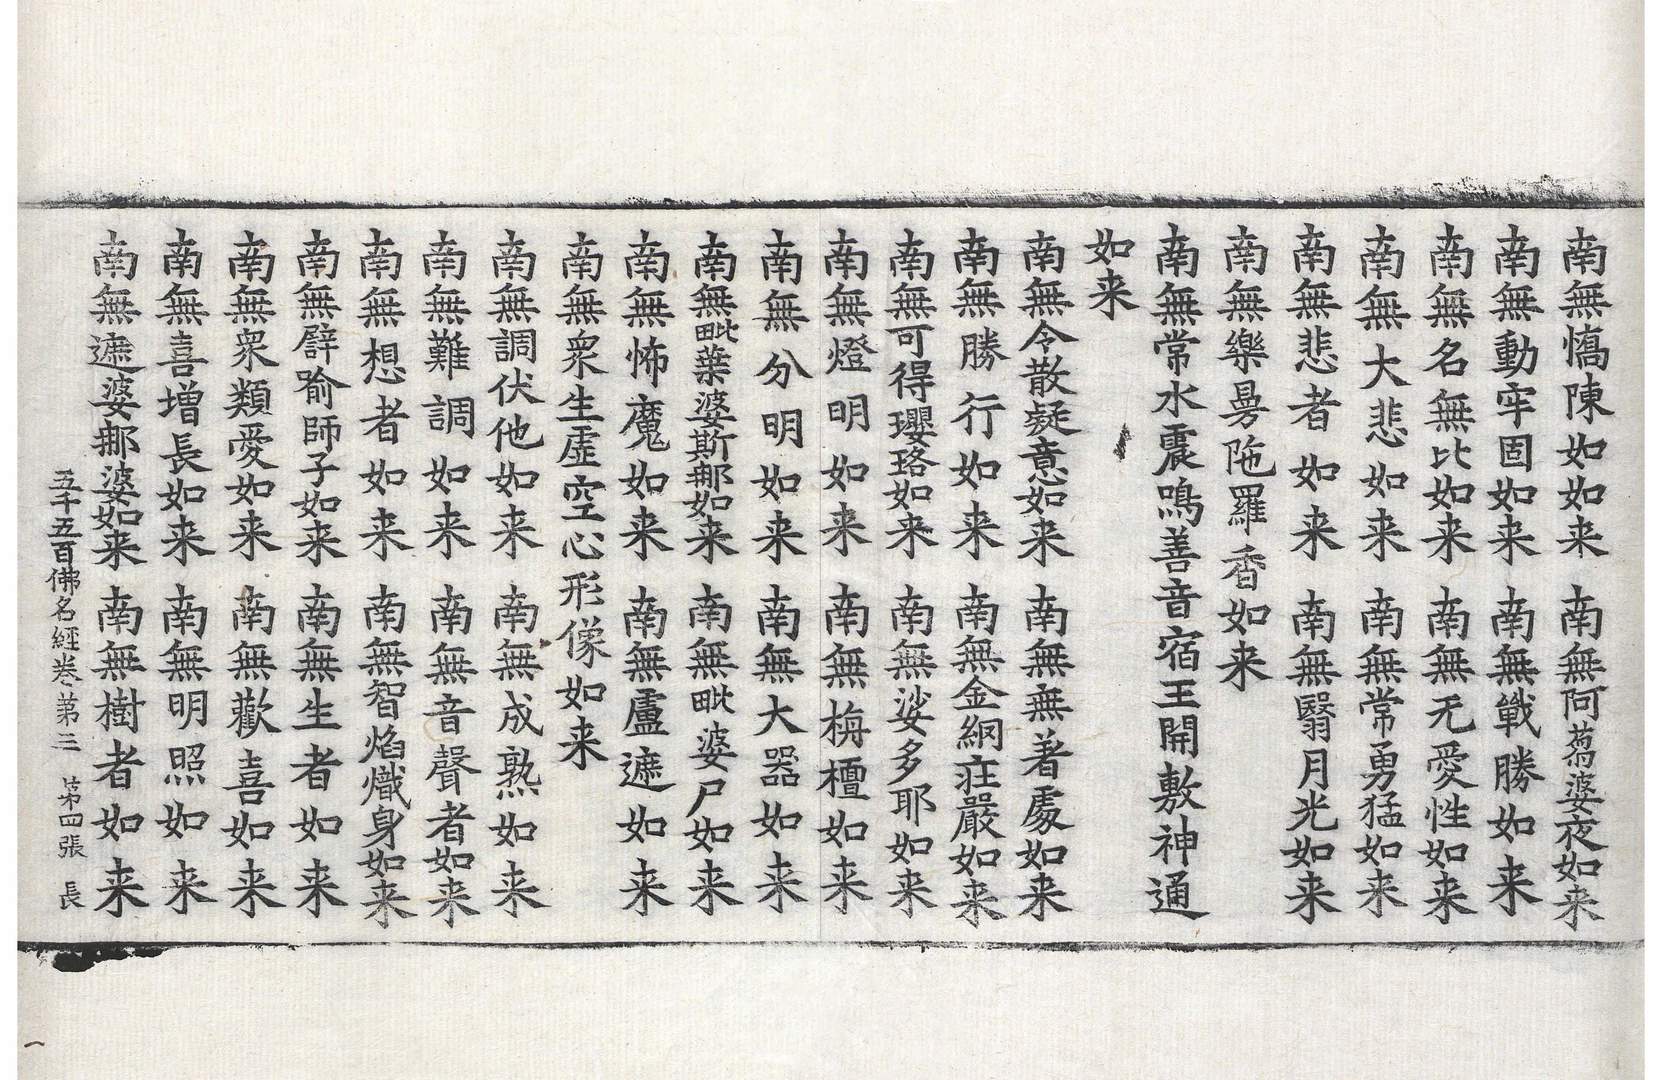 南無憍陳如如来 南無阿蒭婆夜如来
南無動牢固如来 南無戰勝如来
南無名無比如来 南無无愛性如来
南無大悲如来 南無常勇猛如来
南無悲者如来 南無翳月光如来
南無樂曼陁羅香如来
南無常水震鳴善音宿王開敷神通
如来
南無令散凝意如来 南無無著處如来
南無勝行如来 南無金網莊嚴如来
南無可得瓔珞如来 南無娑多耶如来
南無燈明如来 南無栴檀如来
南無分明如来 南無大器如来
南無毗葉婆斯那如来 南無毗婆尸如来
南無怖魔如来 南無盧遮如来
南無衆生虛空心形像如来
南無調伏他如来 南無成熟如来
南無難調如来 南無音聲者如来
南無想者如来 南無智焰熾身如来
南無譬喻師子如来 南無生者如来
南無衆類愛如来 南無歡喜如来
南無喜增長如来 南無明照如来
南無遮婆那婆如来 南無樹者如来
五千五百佛名經卷第三 第四張 長